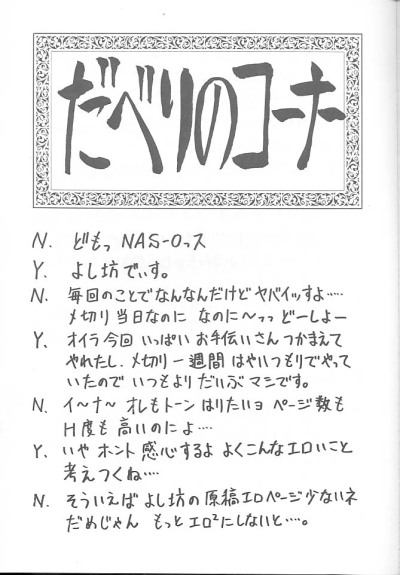 だべりのコーナー
N. どもっ NAS-Oっス
Y. よし坊でぃす。
N. 毎回のことでなんなんだけど ヤバイッすよ……
メ切り 当日なのに なのに〜っっ どーしよー
Y. オイラ今回 いっぱい お手伝いさん つかまえて
やれたし、メ切り 一週間 はやいつもりでやって
いたので いつもより だいぶ マシです。
N. イ〜ナ〜 オレもトーン はりたいョ ページ数も
H度も 高いのによ……
Y. いや ホント 感心するよ よくこんなエロいこと
考えつくね……
N. そういえば よし坊の 原稿エロページ少ないネ
だめじゃん もっと エロ²にしないと……。